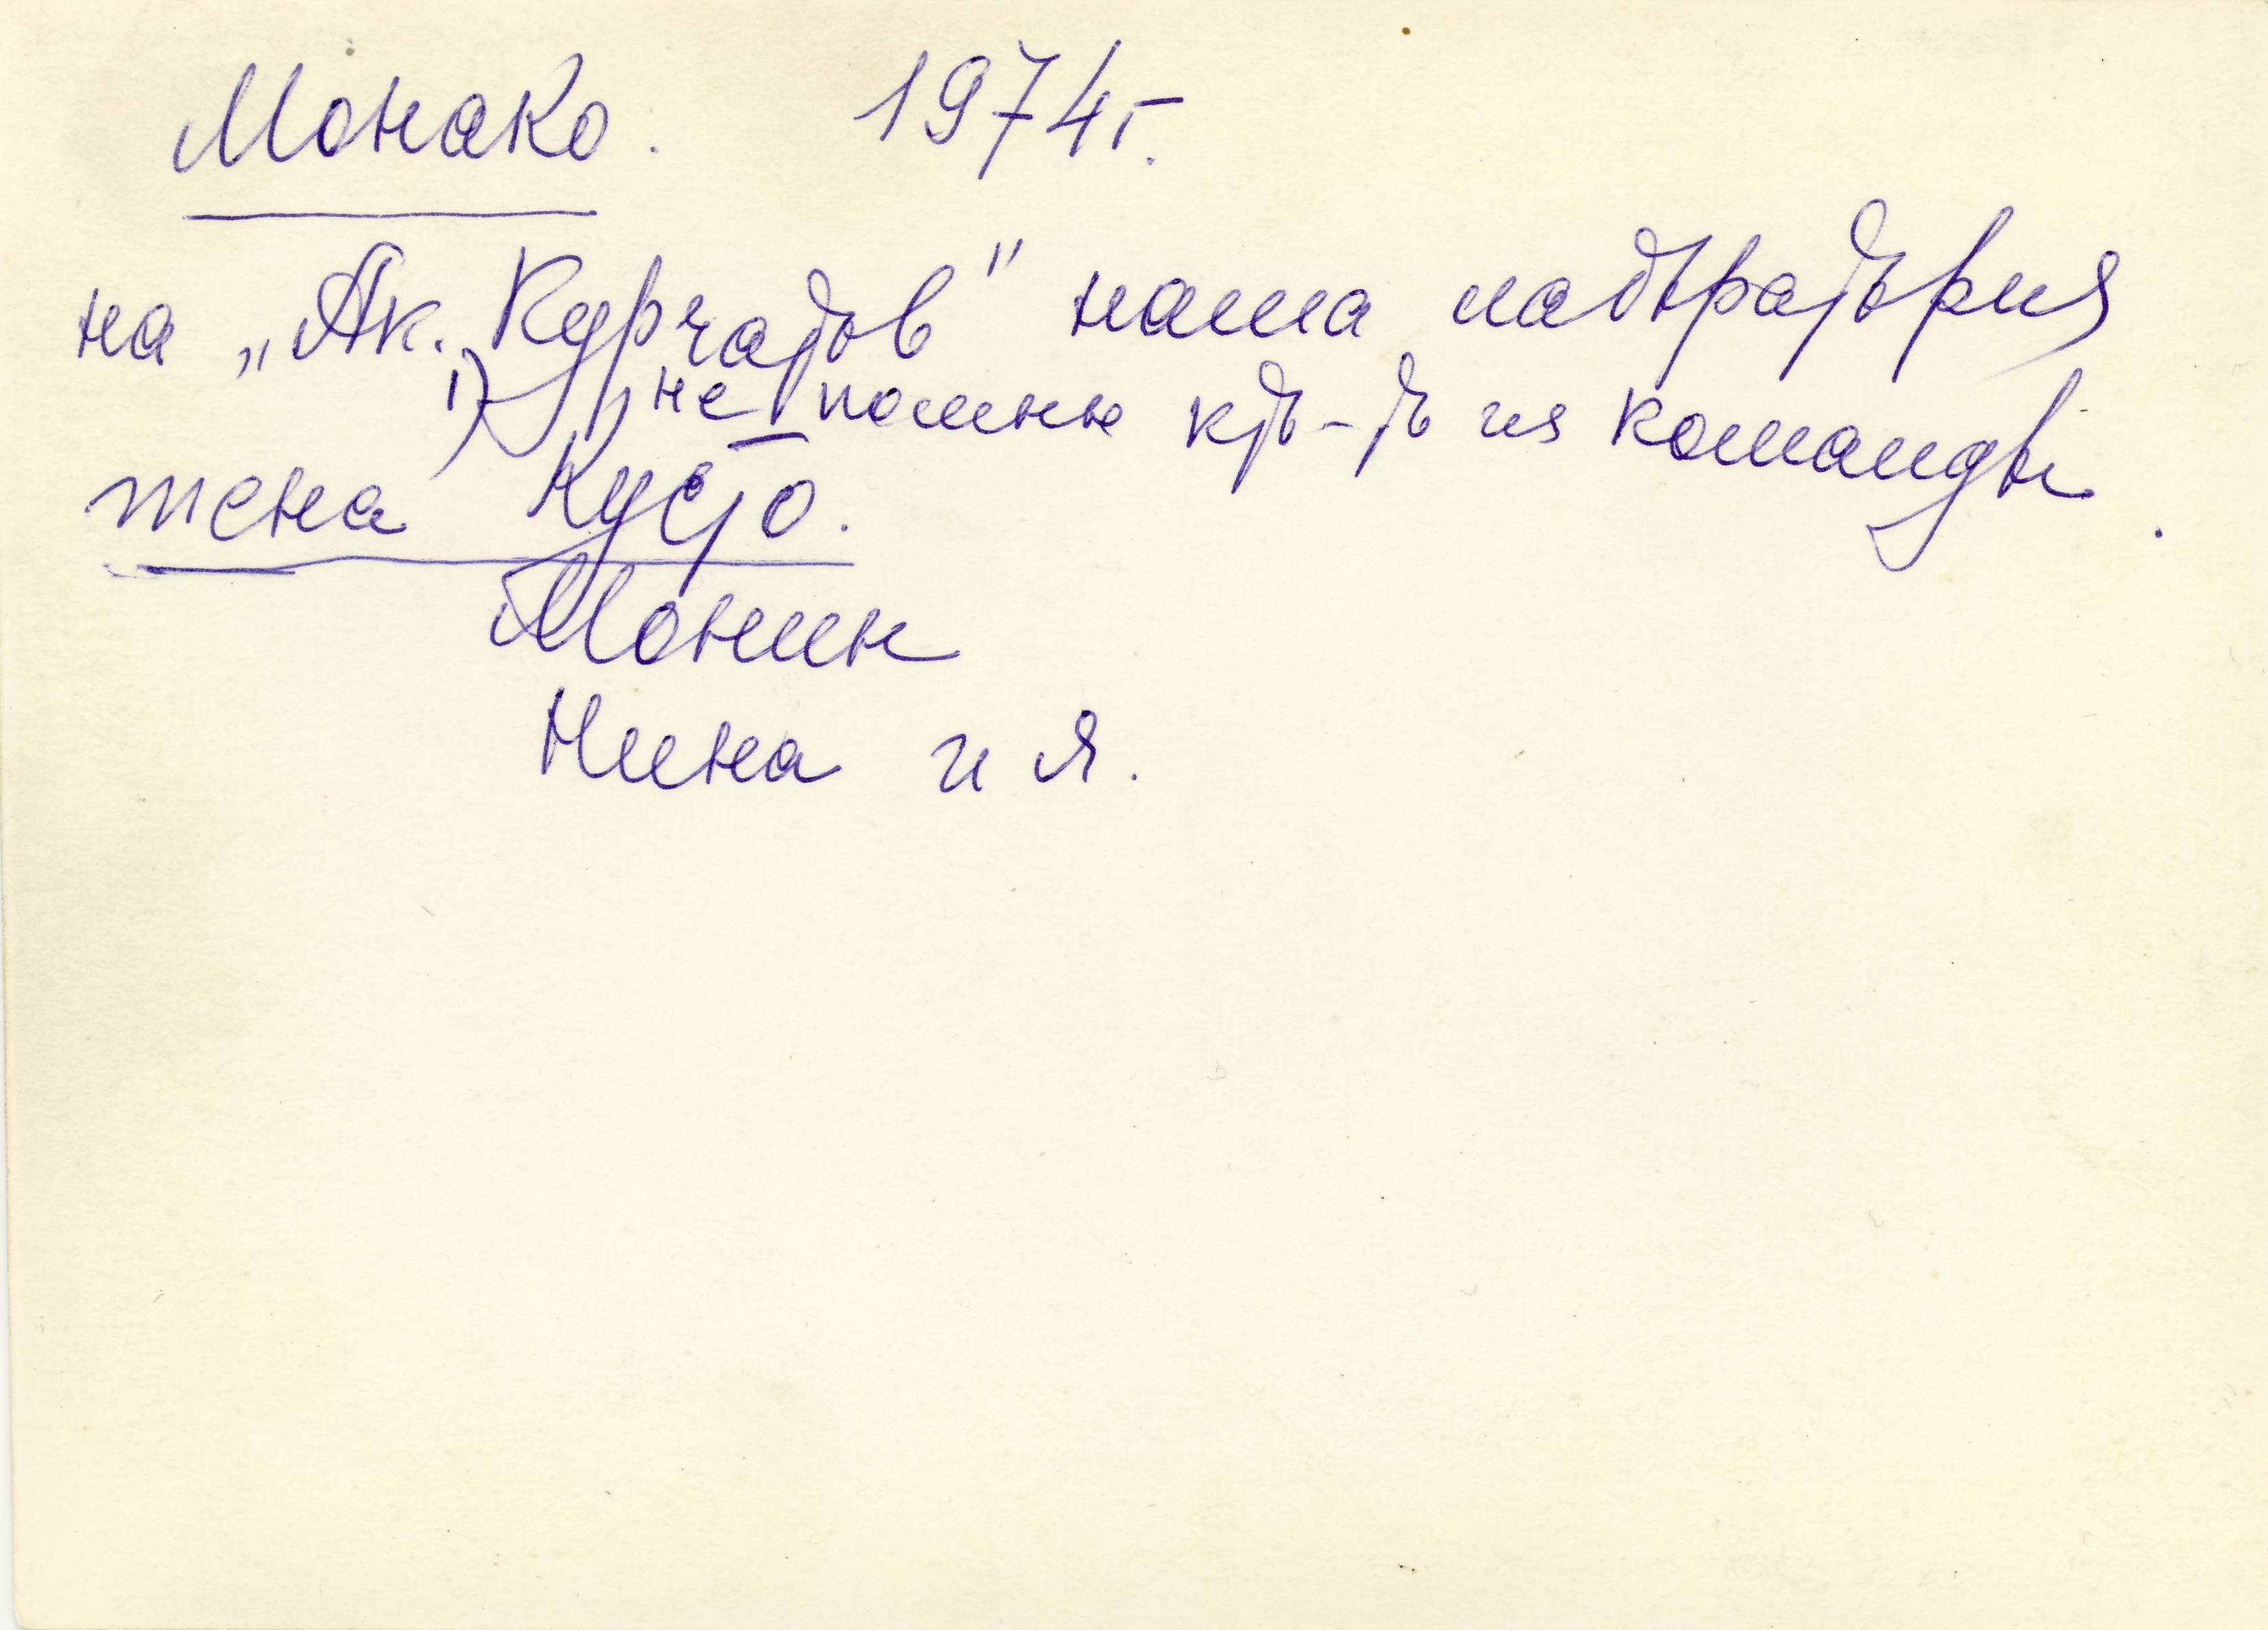 Монако. 1974 г.
на „Ак. Курчатов" наша лаборатория
1) не помню кто-то из команды.
жена Кусто.
Монин
Нина и я.